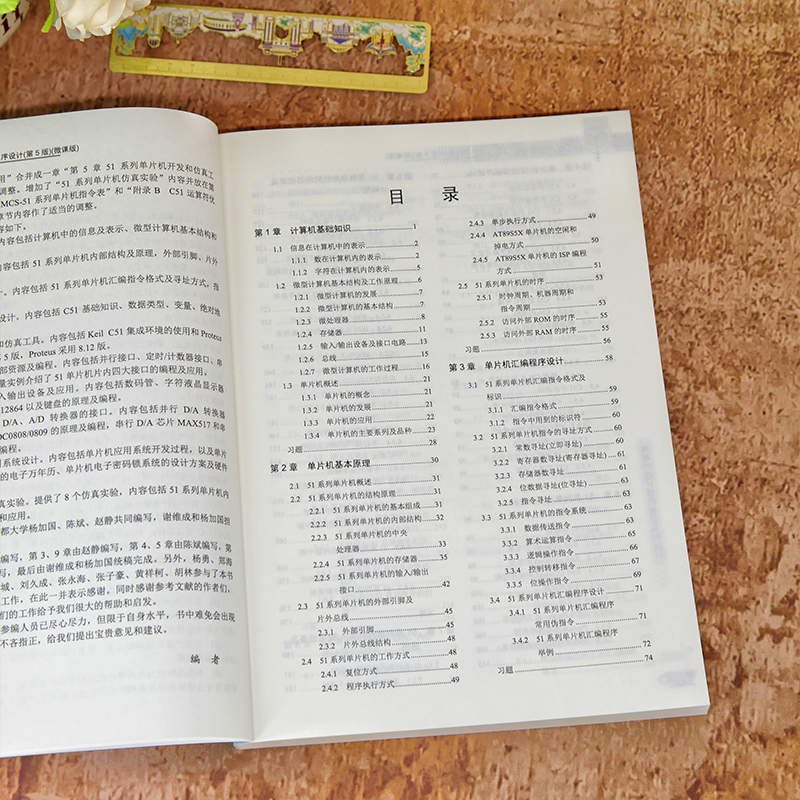 序设计(第5版)(微课版)
用”合并成一章“第5章 51系列单片机开发和仿真工
调整。增加了“51系列单片机仿真实验”内容并放在第
MCS-51系列单片机指令表”和“附录B C51运算符优
章节内容作了适当的调整。
容如下。
内容包括计算机中的信息及表示、微型计算机基本结构和
内容包括51系列单片机内部结构及原理，外部引脚、片外
。内容包括51系列单片机汇编指令格式及寻址方式，指
设计。内容包括C51基础知识、数据类型、变量、绝对地
和仿真工具。内容包括Keil C51集成环境的使用和Proteus
5版，Proteus采用8.12版。
部资源及编程。内容包括并行接口、定时/计数器接口、串
量实例介绍了51单片机片内四大接口的编程及应用。
入输出设备及应用。内容包括数码管、字符液晶显示器
12864以及键盘的原理及编程。
D/A、A/D转换器的接口。内容包括并行D/A转换器
DC0808/0809的原理及编程，串行D/A芯片MAX517和串
编程。
用系统设计。内容包括单片机应用系统开发过程，以及单片
的电子万年历、单片机电子密码锁系统的设计方案及硬件
真实验。提供了8个仿真实验，内容包括51系列单片机内
和应用。
都大学杨加国、陈斌、赵静共同编写，谢维成和杨加国担
编写，第3、9章由赵静编写，第4、5章由陈斌编写，第
写，最后由谢维成和杨加国统稿完成。另外，杨勇、郑海
城、刘久成、张永海、张子豪、黄祥柯、胡林参与了本书
工作，在此一并表示感谢。同时感谢参考文献的作者们，
们的工作给予我们很大的帮助和启发。
参编人员已尽心尽力，但限于自身水平，书中难免会出现
不吝指正，给我们提出宝贵意见和建议。
编 者
目 录
第1章 计算机基础知识 1
1.1 信息在计算机中的表示 2
1.1.1 数在计算机内的表示 2
1.1.2 字符在计算机内的表示 5
1.2 微型计算机基本结构及工作原理 6
1.2.1 微型计算机的发展 7
1.2.2 微型计算机的基本结构 7
1.2.3 微处理器 8
1.2.4 存储器 11
1.2.5 输入/输出设备及接口电路 13
1.2.6 总线 15
1.2.7 微型计算机的工作过程 16
1.3 单片机概述 21
1.3.1 单片机的概念 21
1.3.2 单片机的发展 21
1.3.3 单片机的应用 22
1.3.4 单片机的主要系列及品种 23
习题 28
第2章 单片机基本原理 30
2.1 51系列单片机概述 31
2.2 51系列单片机的结构原理 31
2.2.1 51系列单片机的基本组成 31
2.2.2 51系列单片机的内部结构 32
2.2.3 51系列单片机的中央
处理器 33
2.2.4 51系列单片机的存储器 35
2.2.5 51系列单片机的输入/输出
接口 42
2.3 51系列单片机的外部引脚及
片外总线 45
2.3.1 外部引脚 45
2.3.2 片外总线结构 48
2.4 51系列单片机的工作方式 48
2.4.1 复位方式 48
2.4.2 程序执行方式 49
2.4.3 单步执行方式 49
2.4.4 AT89S5X单片机的空闲和
掉电方式 50
2.4.5 AT89S5X单片机的ISP编程
方式 51
2.5 51系列单片机的时序 53
2.5.1 时钟周期、机器周期和
指令周期 53
2.5.2 访问外部ROM的时序 55
2.5.3 访问外部RAM的时序 55
习题 56
第3章 单片机汇编程序设计 58
3.1 51系列单片机汇编指令格式及
标识 59
3.1.1 汇编指令格式 59
3.1.2 指令中用到的标识符 60
3.2 51系列单片机指令的寻址方式 60
3.2.1 常数寻址(立即寻址) 60
3.2.2 寄存器数寻址(寄存器寻址) 61
3.2.3 存储器数寻址 61
3.2.4 位数据寻址(位寻址) 63
3.2.5 指令寻址 63
3.3 51系列单片机的指令系统 63
3.3.1 数据传送指令 63
3.3.2 算术运算指令 65
3.3.3 逻辑操作指令 66
3.3.4 控制转移指令 67
3.3.5 位操作指令 69
3.4 51系列单片机汇编程序设计 71
3.4.1 51系列单片机汇编程序
常用伪指令 71
3.4.2 51系列单片机汇编程序
举例 72
习题 74